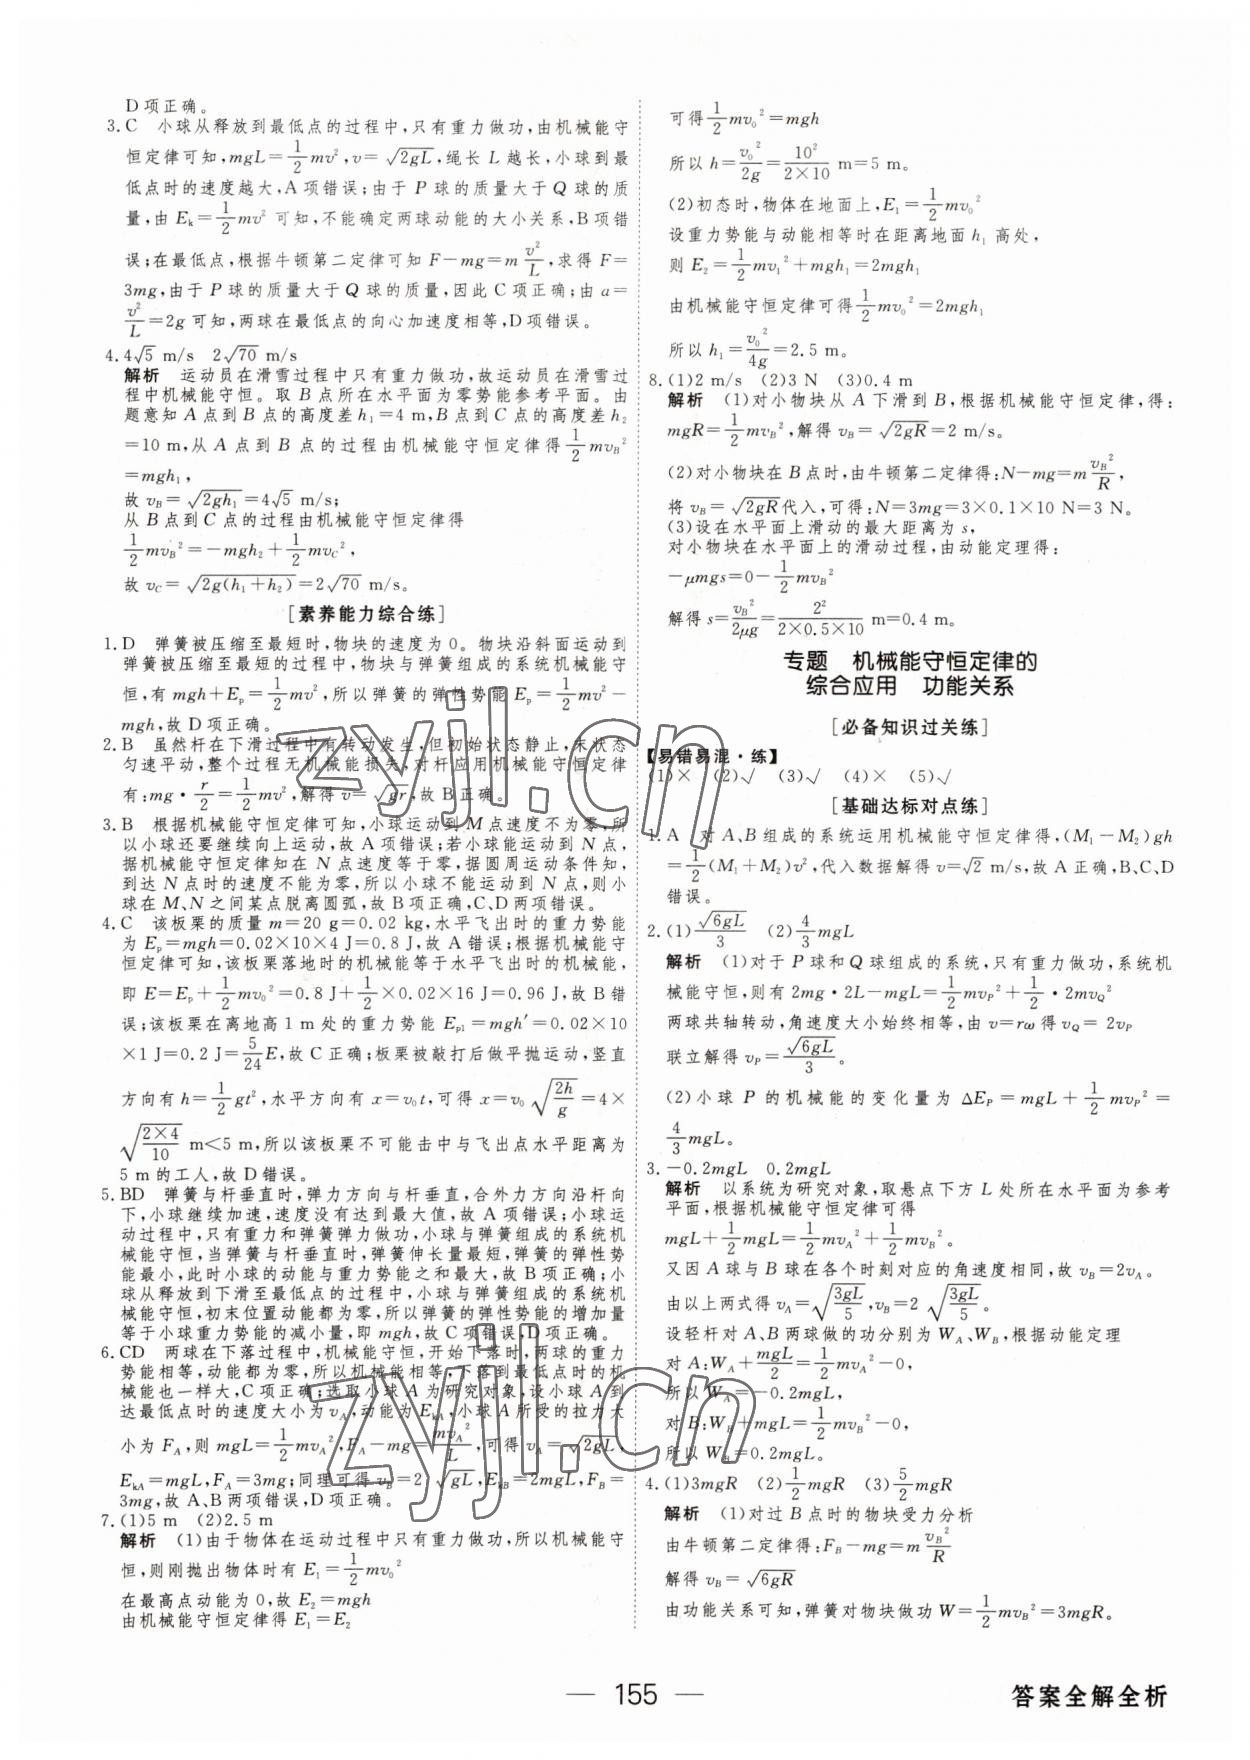 D项正确。
3.C 小球从释放到最低点的过程中,只有重力做功,由机械能守
恒定律可知,mgL=1/2mv²,v=√2gL,绳长 L 越长,小球到最
低点时的速度越大,A项错误;由于 P 球的质量大于 Q 球的质
量,由 Eₖ=1/2mv² 可知,不能确定两球动能的大小关系,B项错
误;在最低点,根据牛顿第二定律可知 F-mg=m v²/L,求得 F=
3mg,由于 P 球的质量大于 Q 球的质量,因此C项正确;由 a=
v²/L=2g 可知,两球在最低点的向心加速度相等,D项错误。
4.4√5 m/s 2√70 m/s
解析 运动员在滑雪过程中只有重力做功,故运动员在滑雪过
程中机械能守恒。取 B 点所在水平面为零势能参考平面。由
题意知 A 点到 B 点的高度差 h₁=4 m,B 点到 C 点的高度差 h₂
=10 m,从 A 点到 B 点的过程由机械能守恒定律得 1/2mv_B²
=mgh₁,
故 v_B=√2gh₁=4√5 m/s;
从 B 点到 C 点的过程由机械能守恒定律得
1/2mv_B²=-mgh₂+1/2mv_C²,
故 v_C=√2g(h₁+h₂)=2√70 m/s。
[素养能力综合练]
1.D 弹簧被压缩至最短时,物块的速度为0。物块沿斜面运动到
弹簧被压缩至最短的过程中,物块与弹簧组成的系统机械能守
恒,有 mgh+Eₚ=1/2mv²,所以弹簧的弹性势能 Eₚ=1/2mv²-
mgh,故D项正确。
2.B 虽然杆在下滑过程中有转动发生,但初始状态静止,末状态
匀速平动,整个过程无机械能损失,对杆应用机械能守恒定律
有:mg·r/2=1/2mv²,解得 v=√gr,故B正确。
3.B 根据机械能守恒定律可知,小球运动到 M 点速度不为零,所
以小球还要继续向上运动,故A项错误;若小球能运动到 N 点,
据机械能守恒定律知在 N 点速度等于零,据圆周运动条件知,
到达 N 点时的速度不能为零,所以小球不能运动到 N 点,则小
球在 M、N 之间某点脱离圆弧,故B项正确,C、D两项错误。
4.C 该板栗的质量 m=20 g=0.02 kg,水平飞出时的重力势能
为 Eₚ=mgh=0.02×10×4 J=0.8 J,故A错误;根据机械能守
恒定律可知,该板栗落地时的机械能等于水平飞出时的机械能,
即 E=Eₚ+1/2mv₀²=0.8 J+1/2×0.02×16 J=0.96 J,故B错
误;该板栗在离地高1 m处的重力势能 Eₚ₁=mgh′=0.02×10
×1 J=0.2 J=5/24E,故C正确;板栗被敲打后做平抛运动,竖直
方向有 h=1/2gt²,水平方向有 x=v₀t,可得 x=v₀√(2h/g)=4×
√(2×4/10) m<5 m,所以该板栗不可能击中与飞出点水平距离为
5 m的工人,故D错误。
5.BD 弹簧与杆垂直时,弹力方向与杆垂直,合外力方向沿杆向
下,小球继续加速,速度没有达到最大值,故A项错误;小球运
动过程中,只有重力和弹簧弹力做功,小球与弹簧组成的系统机
械能守恒,当弹簧与杆垂直时,弹簧伸长量最短,弹簧的弹性势
能最小,此时小球的动能与重力势能之和最大,故B项正确;小
球从释放到下滑至最低点的过程中,小球与弹簧组成的系统机
械能守恒,初末位置动能都为零,所以弹簧的弹性势能的增加量
等于小球重力势能的减小量,即 mgh,故C项错误,D项正确。
6.CD 两球在下落过程中,机械能守恒,开始下落时,两球的重力
势能相等,动能都为零,所以机械能相等,下落到最低点时的机
械能也一样大,C项正确;选取小球 A 为研究对象,设小球 A 到
达最低点时的速度大小为 v_A,动能为 E_kA,小球 A 所受的拉力大
小为 F_A,则 mgL=1/2mv_A²,F_A-mg=mv_A²/L,可得 v_A=√2gL,
E_kA=mgL,F_A=3mg;同理可得 v_B=2√gL,E_kB=2mgL,F_B=
3mg,故A、B两项错误,D项正确。
7.(1)5 m (2)2.5 m
解析 (1)由于物体在运动过程中只有重力做功,所以机械能守
恒,则刚抛出物体时有 E₁=1/2mv₀²
在最高点动能为0,故 E₂=mgh
由机械能守恒定律得 E₁=E₂
可得1/2mv₀²=mgh
所以 h=v₀²/2g=10²/(2×10) m=5 m。
(2)初态时,物体在地面上,E₁=1/2mv₀²
设重力势能与动能相等时在距离地面 h₁ 高处,
则 E₂=1/2mv₁²+mgh₁=2mgh₁
由机械能守恒定律可得1/2mv₀²=2mgh₁
所以 h₁=v₀²/4g=2.5 m。
8.(1)2 m/s (2)3 N (3)0.4 m
解析 (1)对小物块从 A 下滑到 B,根据机械能守恒定律,得:
mgR=1/2mv_B²,解得 v_B=√2gR=2 m/s。
(2)对小物块在 B 点时,由牛顿第二定律得:N-mg=m v_B²/R,
将 v_B=√2gR代入,可得:N=3mg=3×0.1×10 N=3 N。
(3)设在水平面上滑动的最大距离为 s,
对小物块在水平面上的滑动过程,由动能定理得:
-μmgs=0-1/2mv_B²
解得 s=v_B²/2μg=2²/(2×0.5×10) m=0.4 m。
专题 机械能守恒定律的
综合应用 功能关系
[必备知识过关练]
【易错易混·练】
(1)× (2)√ (3)√ (4)× (5)√
[基础达标对点练]
1.A 对 A、B 组成的系统运用机械能守恒定律得,(M₁-M₂)gh
=1/2(M₁+M₂)v²,代入数据解得 v=√2 m/s,故A正确,B、C、D
错误。
2.(1)√6gL/3 (2)4/3mgL
解析 (1)对于 P 球和 Q 球组成的系统,只有重力做功,系统机
械能守恒,则有 2mg·2L-mgL=1/2mv_P²+1/2·2mv_Q²
两球共轴转动,角速度大小始终相等,由 v=rω 得 v_Q=2v_P
联立解得 v_P=√6gL/3。
(2)小球 P 的机械能的变化量为 ΔE_P=mgL+1/2mv_P²=
4/3mgL。
3.-0.2mgL 0.2mgL
解析 以系统为研究对象,取悬点下方 L 处所在水平面为参考
平面,根据机械能守恒定律可得
mgL+1/2mgL=1/2mv_A²+1/2mv_B²。
又因 A 球与 B 球在各个时刻对应的角速度相同,故 v_B=2v_A。
由以上两式得 v_A=√(3gL/5),v_B=2√(3gL/5)。
设轻杆对 A、B 两球做的功分别为 W_A、W_B,根据动能定理
对 A:W_A+mgL/2=1/2mv_A²-0,
所以 W_A=-0.2mgL,
对 B:W_B+mgL=1/2mv_B²-0,
所以 W_B=0.2mgL。
4.(1)3mgR (2)1/2mgR (3)5/2mgR
解析 (1)对过 B 点时的物块受力分析
由牛顿第二定律得:F_B-mg=m v_B²/R
解得 v_B=√6gR
由功能关系可知,弹簧对物块做功 W=1/2mv_B²=3mgR。
155
答案全解全析
zyjl.cn
zyjl.cn